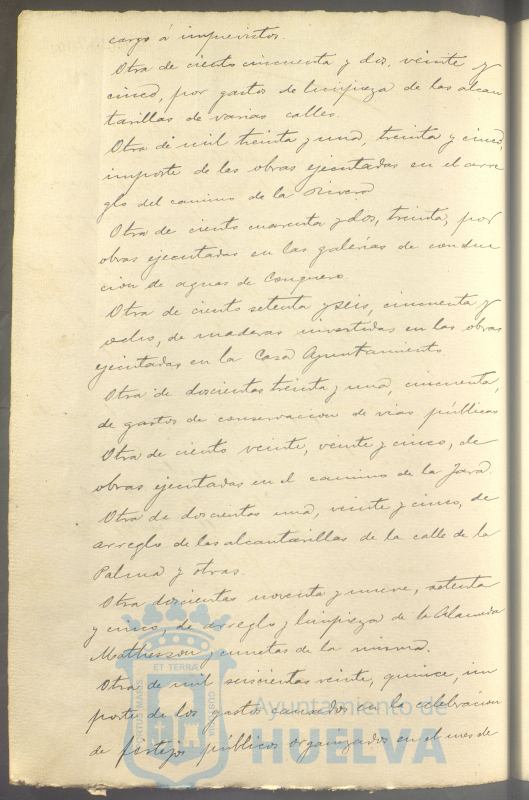 cargo á imprevistos.
Otra de ciento cincuenta y dos, veinte y
cinco, por gastos de limpieza de las alcan
tarillas de varias calles.
Otra de mil treinta y una, treinta y cinco,
importe de las obras ejecutadas en el arre
glo del camino de la Rivera
Otra de ciento cuarenta y dos, treinta, por
obras ejecutadas en las galerías de conduc
cion de aguas de Conquero.
Otra de ciento setenta y seis, cincuenta y
ocho, de maderas invertidas en las obras
ejecutadas en la Casa Ayuntamiento
Otra de doscientas treinta y una, cincuenta,
de gastos de conservacion de vias públicas
Otra de ciento veinte, veinte y cinco, de
obras ejecutadas en el camino de la Jara.
Otra de doscientas una, veinte y cinco, de
arreglo de las alcantarillas de la calle de la
Palma y otras.
Otra doscientas noventa y nueve, setenta
y cinco, de arreglo y limpieza de la Alameda
Mathesson y cunetas de la misma.
Otra de mil seiscientas veinte, quince, im
porte de los gastos causados en la celebracion
de festejos públicos organizados en el mes de
PORTUS MARIS ET TERRÆ CUSTODIA
Ayuntamiento de
HUELVA